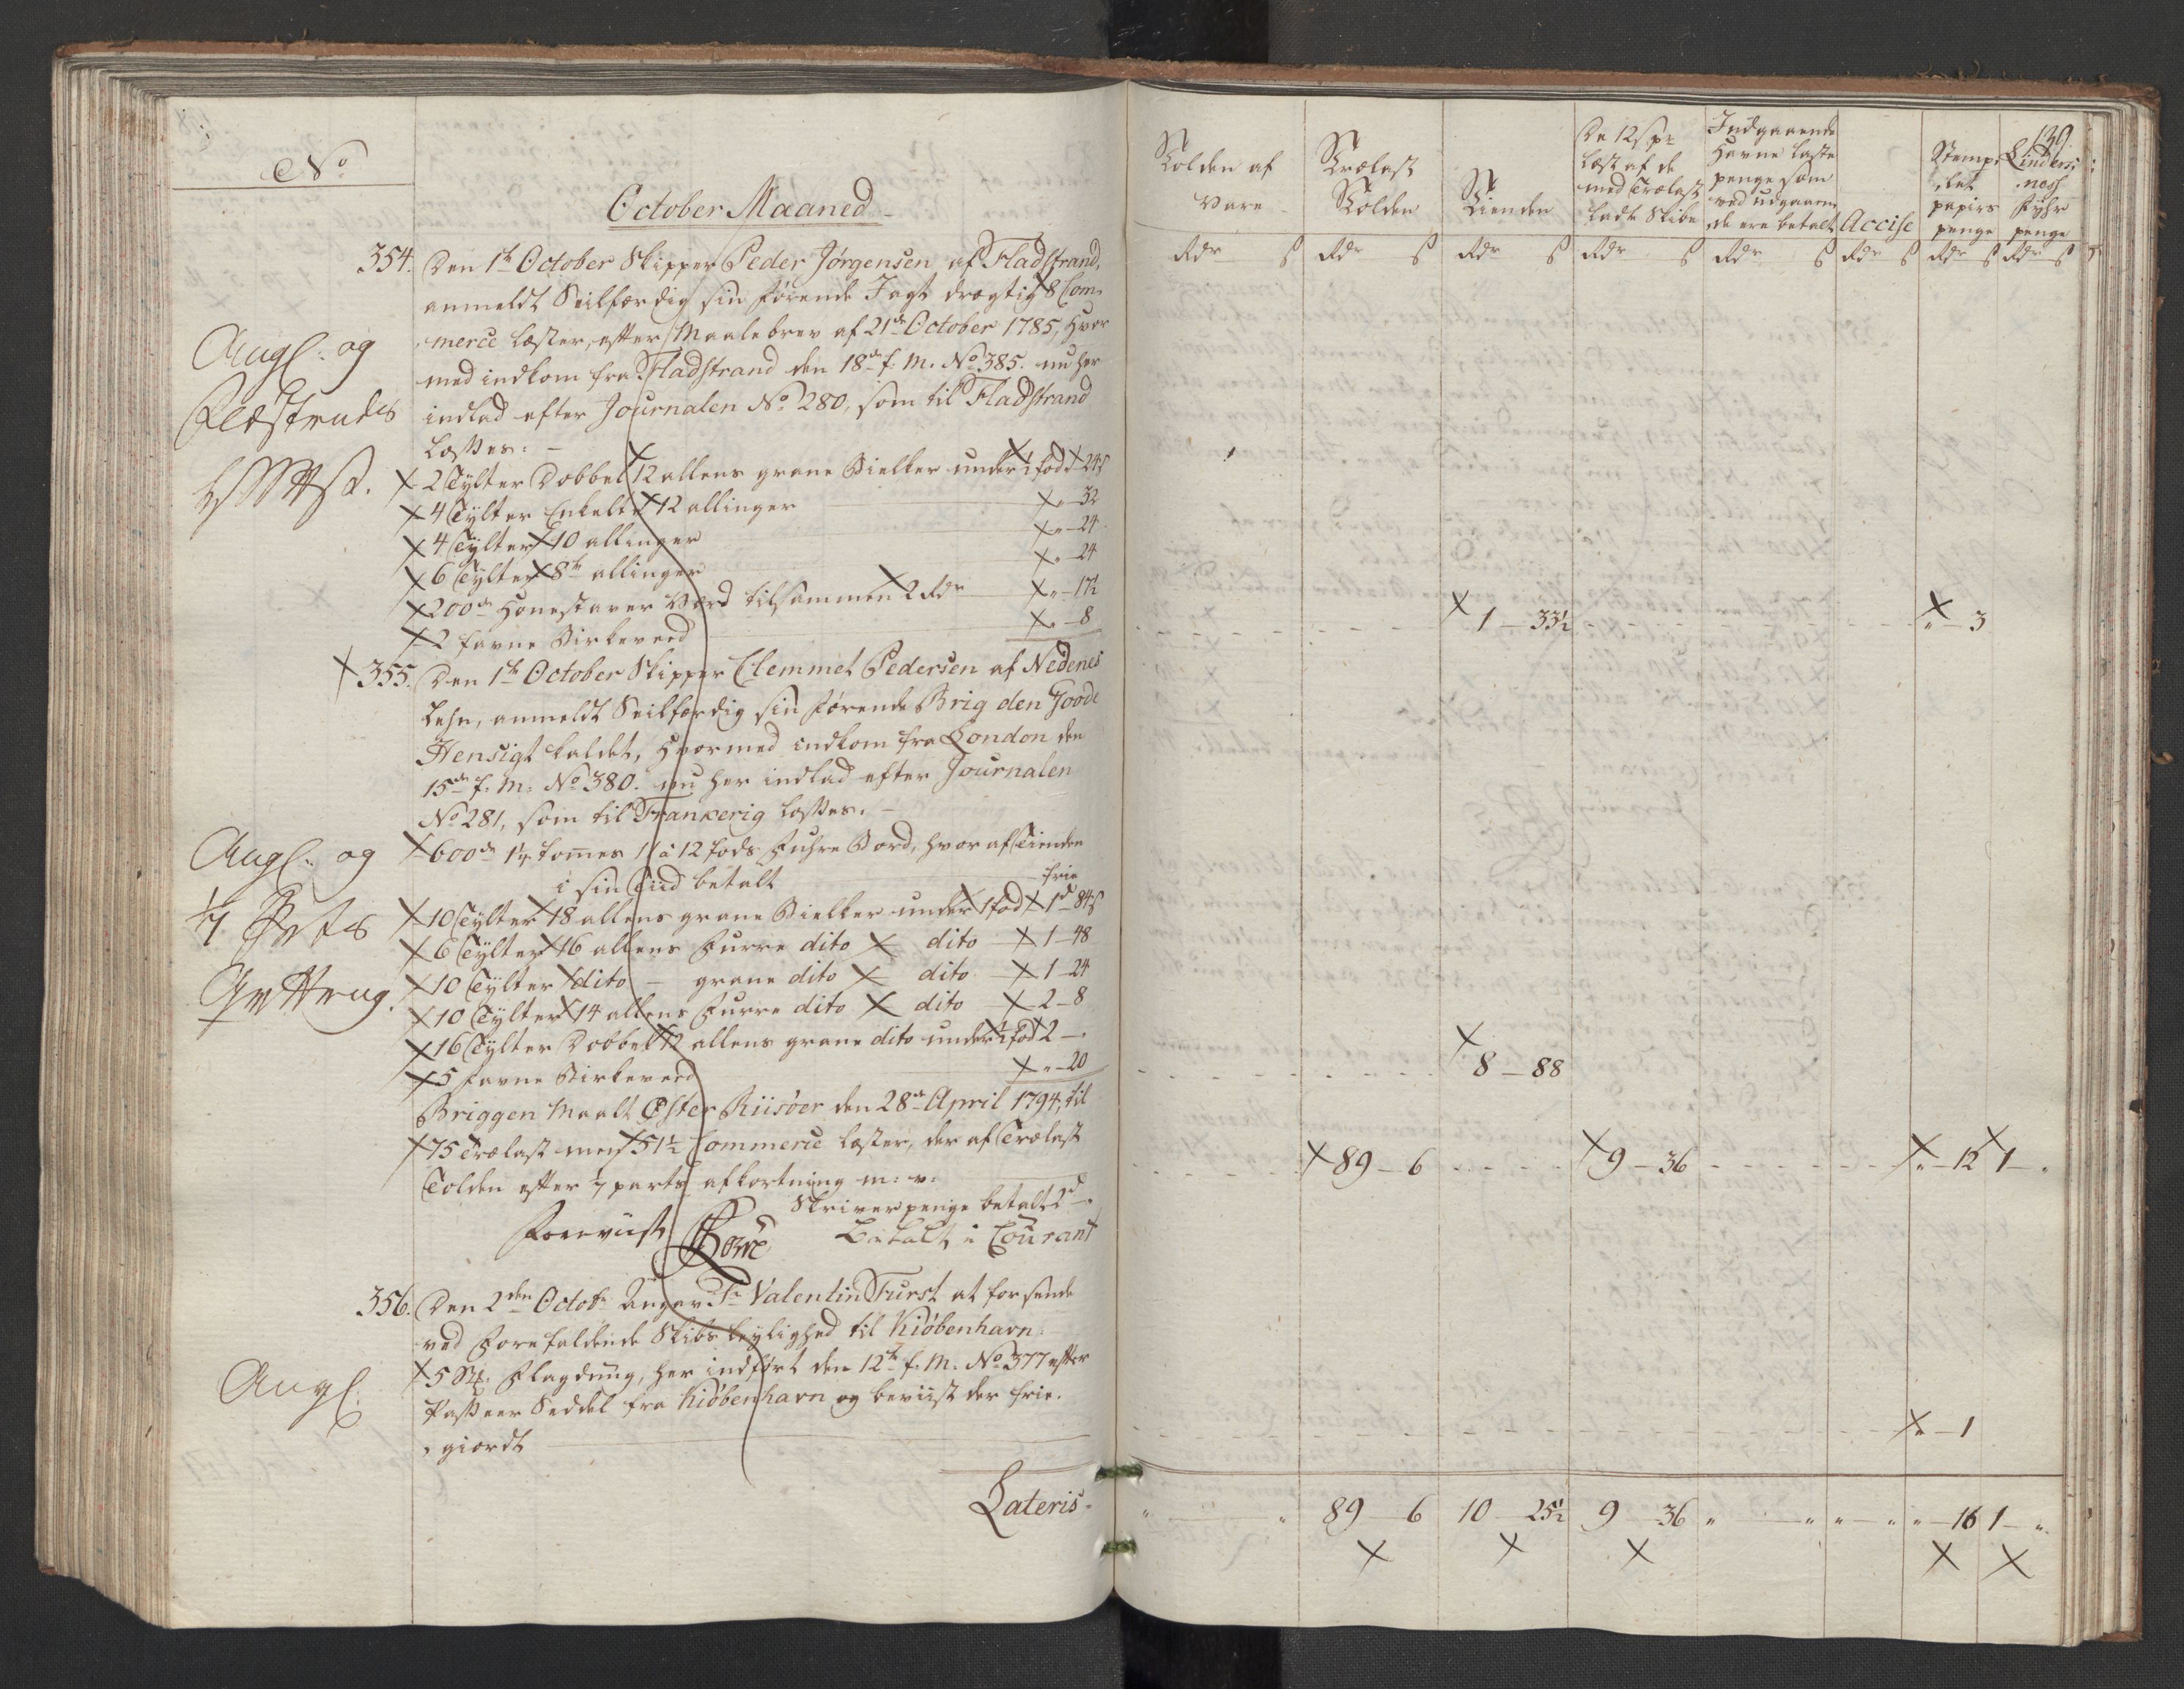 No
October Maaned
354. Den 1te October Skipper Peder Jørgensen af Fladstrand,
anmeldt Seilfærdig sin førende Jagt drægtig 8 Com-
merce Læster, efter Maalebrev af 21de October 1785, hvor
Angl: og
med indkom fra Fladstrand den 18de f. M. No 385. nu her
indlad efter Journalen No 280, som til Fladstrand
losses:
2 Tylter Dobbel 12 allens grane Bielker under 1 fod 24 ß
4 Tylter Enkelte 12 allinger " 32
4 Tylter 10 allinger " 24
6 Tylter 8te allinger " 24
200de Honestaver Værd tilsammen 2 Rdr " 17½
2 favne Birkeveed " 8
355. Den 1te October Skipper Clemmet Pedersen af Nedenes
Lehn, anmeldt Seilfærdig sin førende Brig den Goode
Hensigt kaldet, hvormed indkom fra London den
15de f. M. No 380. nu her indlad efter Journalen
No 281, som til Frankerig losses.
Angl: og
600de 1¼ tommes 11 à 12 fods Fuhre Bord, hvor af Tienden
i sin Tiid betalt frie
10 Tylter 18 allens grane Bielker under 1 fod 1d 84 ß
6 Tylter 16 allens Furre dito dito 1 - 48
10 Tylter dito - grane dito dito 1 - 24
10 Tylter 14 allens Furre dito dito 2 - 8
16 Tylter Dobbel 12 allens grane dito under 1 fod 2 -
5 favne Birkeveed " - 20
Briggen Maalt Øster Riisöer den 28de April 1794, til
75 Trælast men 51½ Commerce Læster, der af Trælast
Tolden efter parts afkortning m: v:
Skriver penge betalt 2d -
Betalt i Courant
356. Den 2den Octobr Angav Sr Valentin Furst at forsende
ved Forefaldende Skibs Leylighed til Kiöbenhavn.
Angl:
5 Flagdung, her indført den 12te f. M. No 377 efter
Passeer Seddel fra Kiöbenhavn og beviist der frie-
giordt
Lateris
139
Tolden af Vare
Trælast Tolden
Tienden
De 12 ß pr Læst af de med Trælast ladte Skibe
Indgaaende Havne Laste penge som ved udgaaen de ere betalt
Accise
Stemp- let papiirs penge
Linders- ness Fyhr penge
Rdr ß Rdr ß Rdr ß Rdr ß Rdr ß Rdr ß Rdr ß Rdr ß
1 - 33½ " - 3
8 - 88
89 - 6 9 - 36 " - 12 1 - "
" - 1
" " 89 - 6 10 - 25½ 9 - 36 " " " " " - 16 1 - "